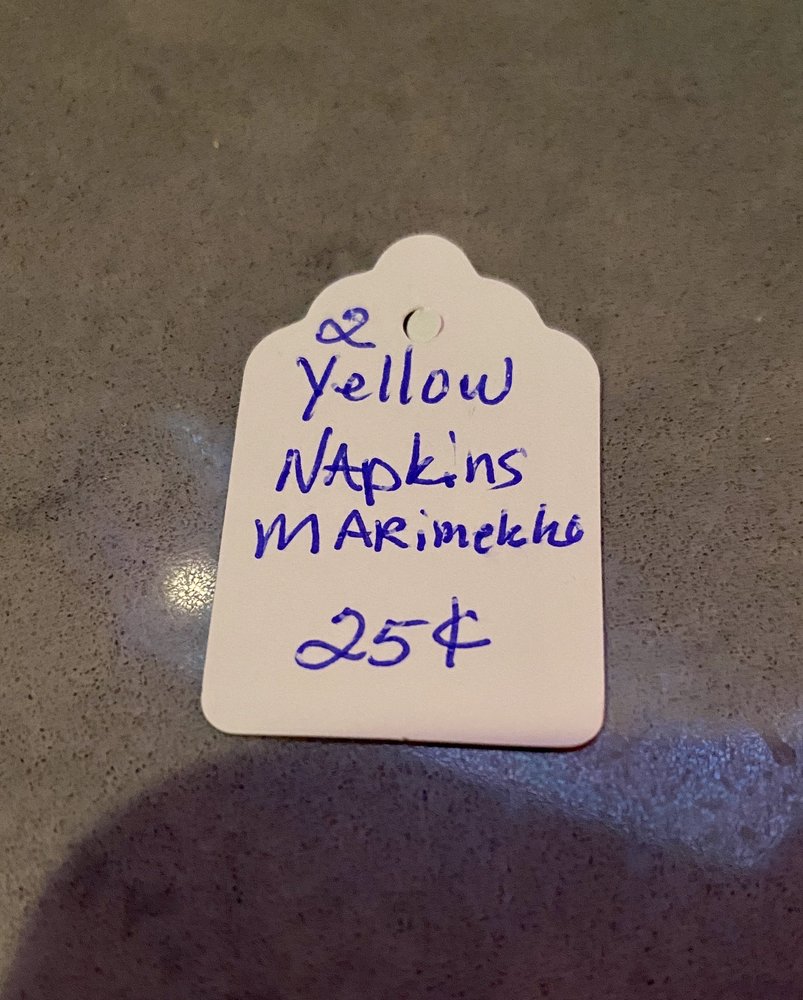 2
Yellow
NApkins
MARimekko
25¢